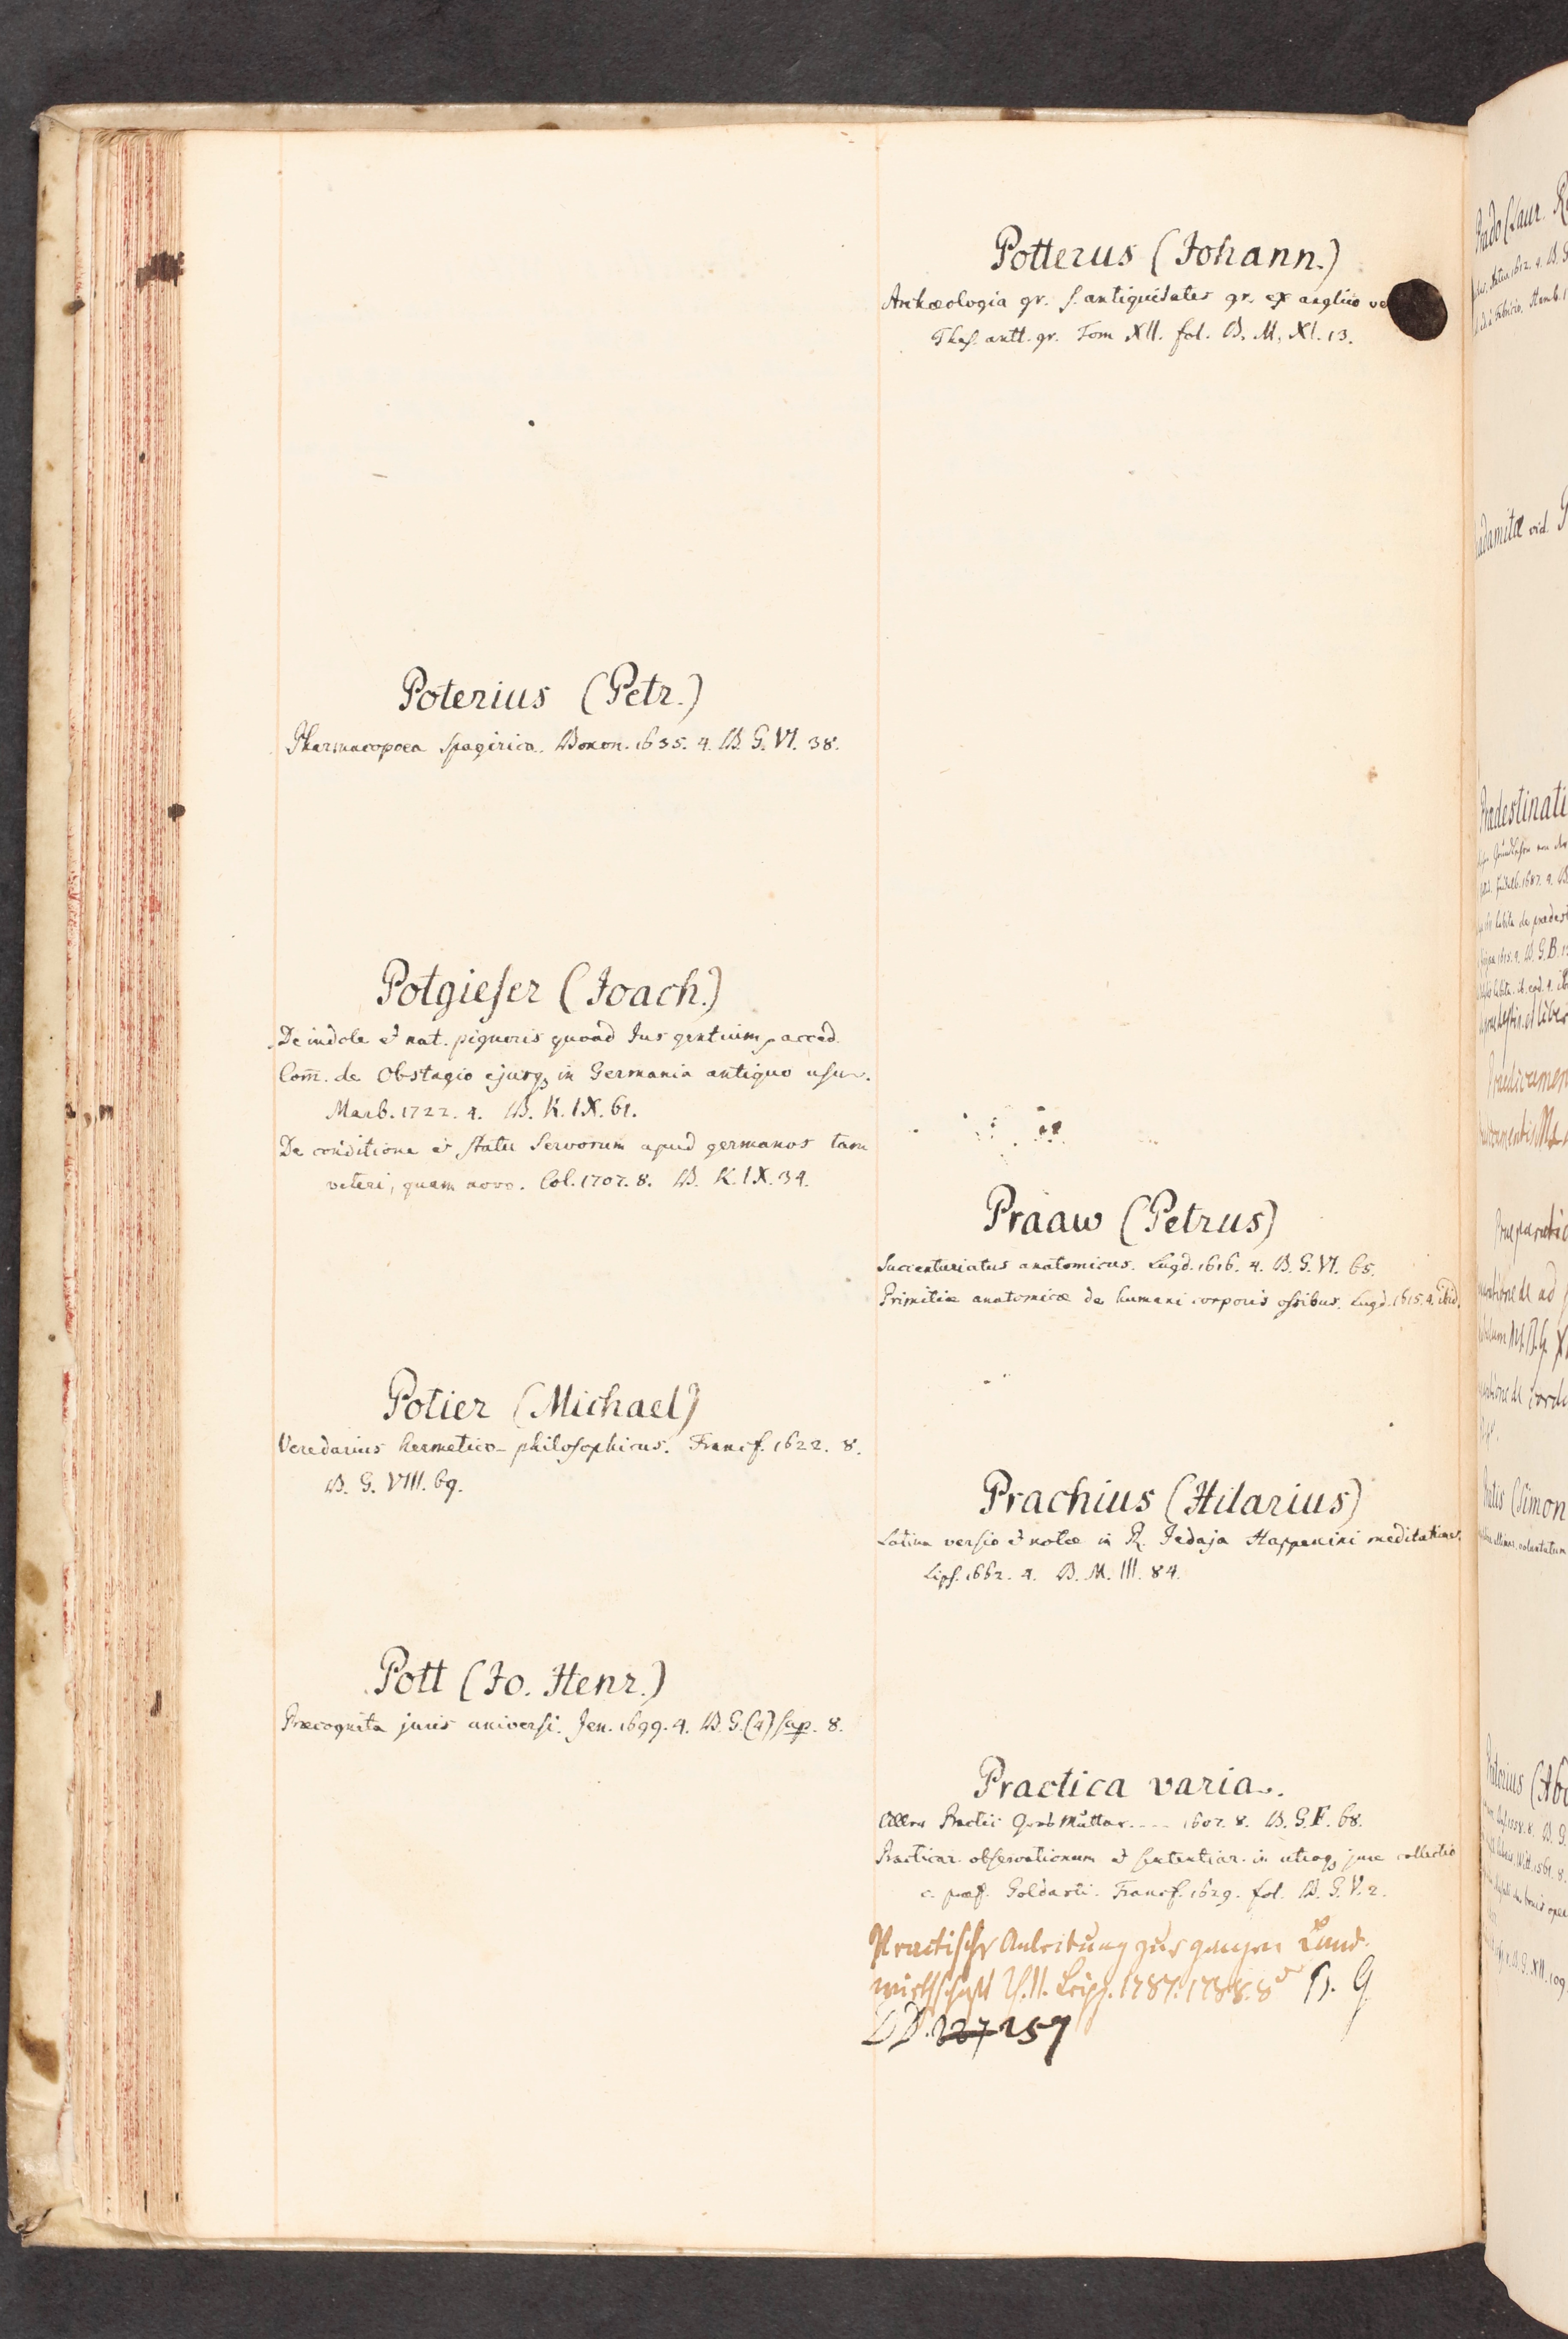 Poterius (Petr.)
Pharmacopoea spagirica. Bonon. 1635. 4. B. G. VI. 38.
Potgieſer (Joach.)
De indole et nat. pignoris quoad Jus gentium, acced.
Com̄. de Obstagio ejusq; in Germania antiquo usu.
Marb. 1722. 4. B. K. IX. 61.
De conditione et statu Servorum apud germanos tam
veteri, quam novo. Col. 1707. 8. B. K. IX. 34.
Potier (Michael)
Veredarius hermetico-philosophicus. Francf. 1622. 8.
B. G. VIII. 69.
Pott (Jo. Henr.)
Præcognita juris universi. Jen. 1699. 4. B. G. (4) sup. 8.
Potterus (Johann.)
Archæologia gr. s. antiquitates gr. ex anglico
Thes. antt. gr. Tom XII. fol. B. M. XI. 13.
Praaw (Petrus)
Succenturiatus anatomicus. Lugd. 1616. 4. B. G. VI. 65.
Primitiæ anatomicæ de humani corporis ossibus. Lugd. 1615. 4. ibid.
Prachius (Hilarius)
Latina versio et notæ in R. Jedaja Happenini meditationes.
Lips. 1662. 4. B. M. III. 84.
Practica varia.
Aller Practic Großmutter. - - - - 1607. 8. B. G. F. 68.
Practicar. observationum et sententiar. in utroq; jure collectio
c. præf. Goldasti. Francf. 1629. fol. B. G. V. 2.
Practische Anleitung zur ganzen Land-
wirthschaft Th. II. Leipz. 1787. 1788. 8° B. G
DD. 227 257